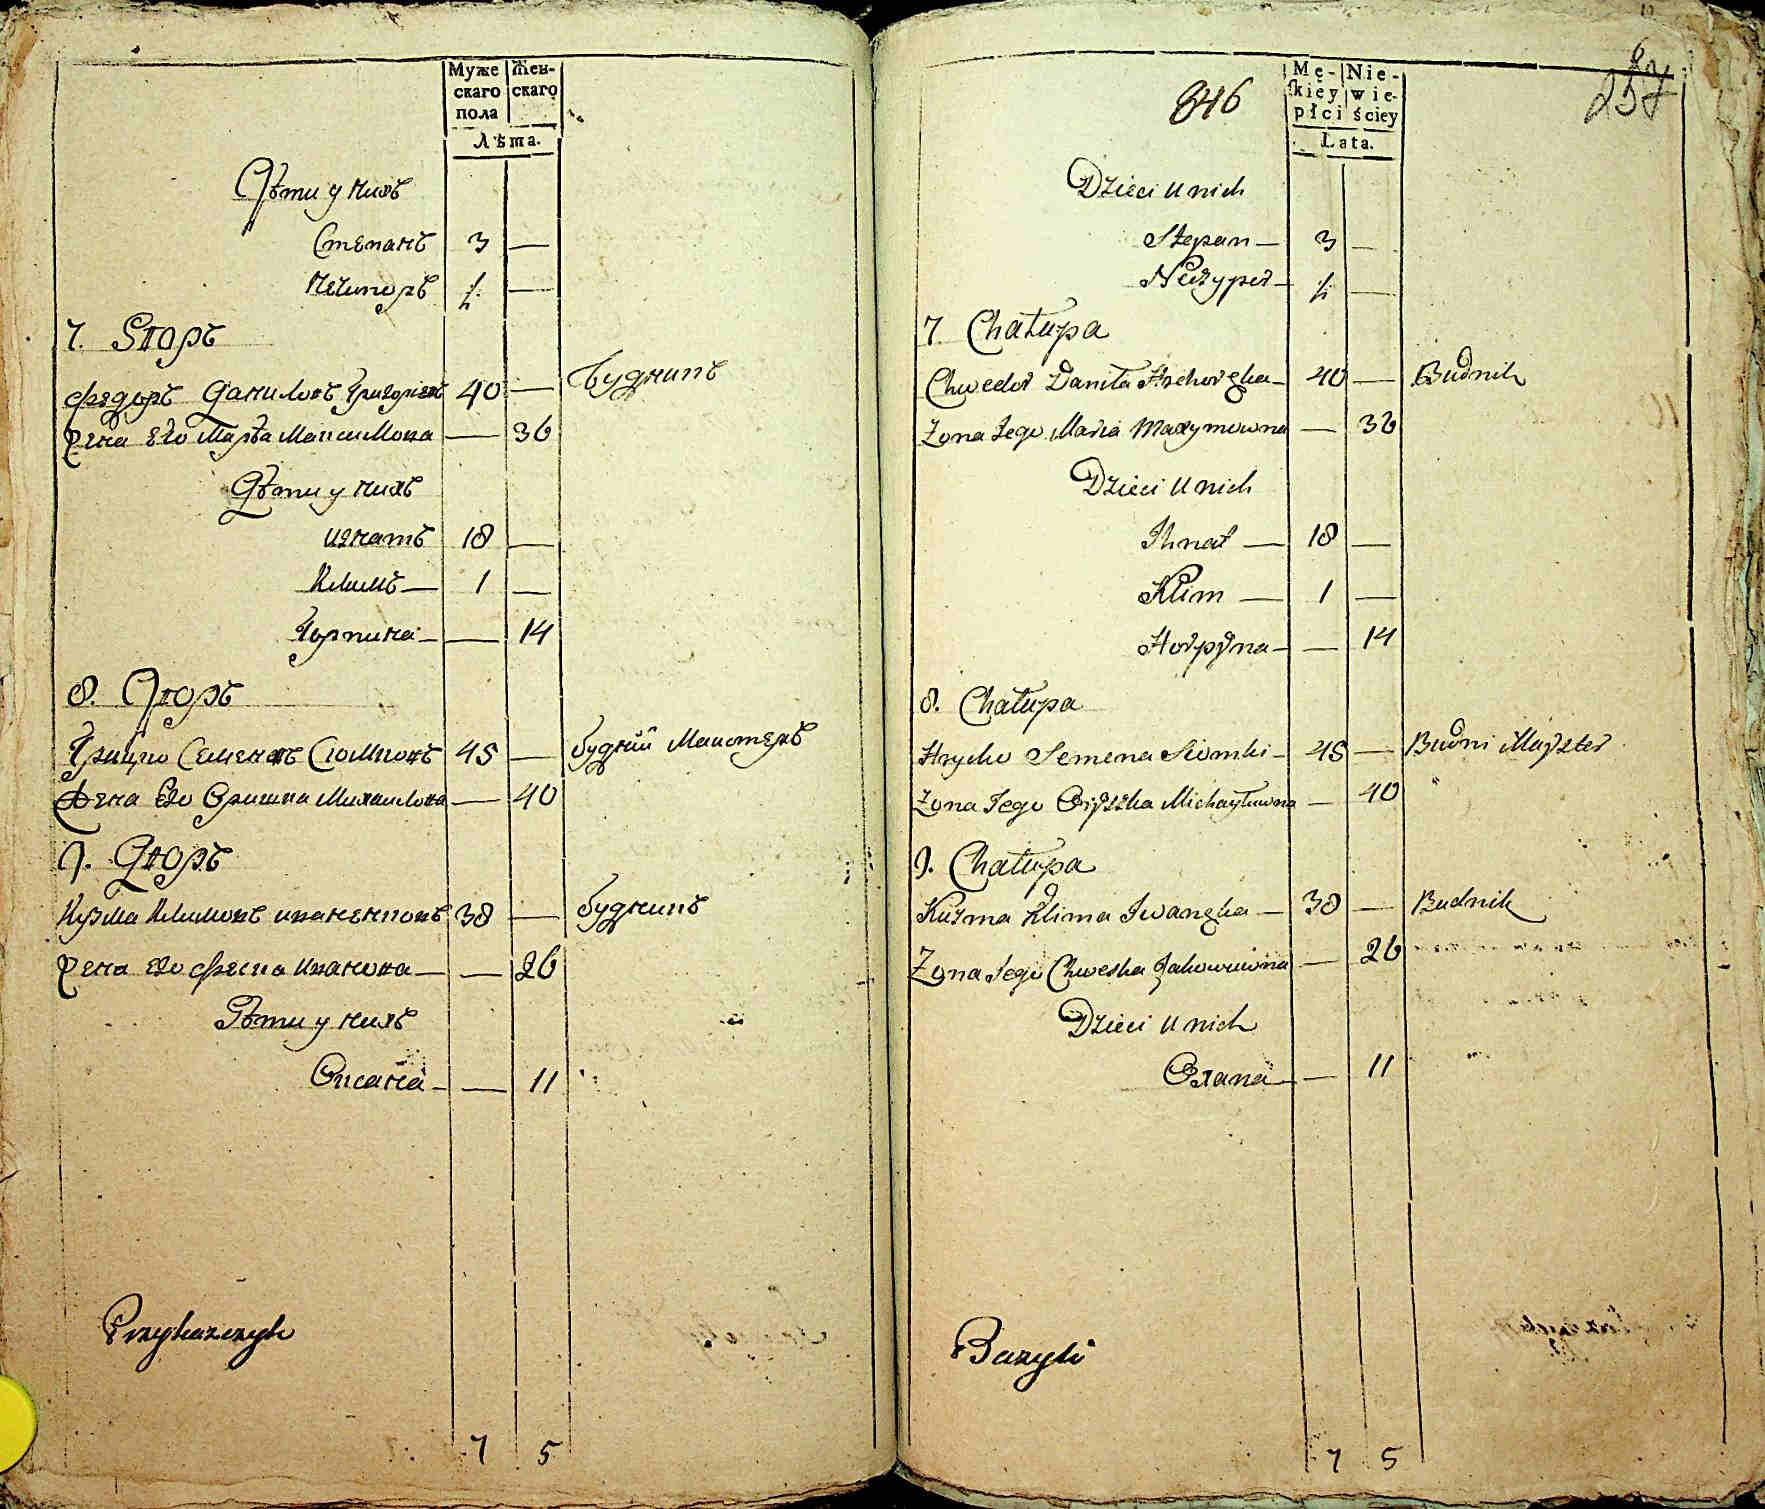 Муже Женскаго
скаго
пола
Лѣта.
Дѣти у нихъ
Степанъ 3 —
Нечипоръ ½ —
7. Дворъ
Федоръ Даниловъ Григоріевъ 40 — Будникъ
Жена Его Марѣа Максимова — 36
Дѣти у нихъ
Игнатъ 18 —
Климъ — 1 —
Горпина — — 14
8. Дворъ
Грицко Семеновъ Сюмковъ 45 — будній Маистеръ
Жена Его Оришка Михаилова — 40
9. Дворъ
Кузма Климовъ иваненковъ 38 — будникъ
Жена Его феска Иванова — — 26
Дѣти у нихъ
Оксана — — 11
Przykazczyk
7 5
846
257
Mę- Nie-
skiey wie-
płci ściey
Lata.
Dzieci u nich
Stepan — 3 —
Neczyper — ½ —
7. Chałupa
Chwedor Daniła Hrehorgka — 40 — Budnik
Zona Jego Maria Maxymowna — 36
Dzieci u nich
Ihnat — 18 —
Klim — 1 —
Horpyna — — 14
8. Chałupa
Hrycko Semena Siomki — 45 — Budni Mayster
Zona Jego Oryszka Michayłowna — 40
9. Chałupa
Kuzma Klima Iwangka — 38 — Budnik
Zona Jego Chweska Jakowowna — 26
Dzieci u nich
Oxana — — 11
Bazyli
7 5